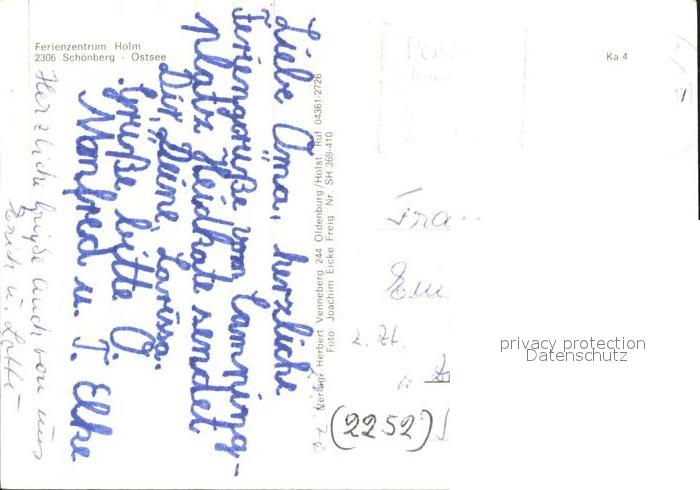 Ferienzentrum Holm
2306 Schönberg - Ostsee
Liebe Oma, herzliche
Feriengrüße vom Camping-
platz Heidkate sendet
Dir, Deine Larissa.
Grüße, bitte O.
Manfred u. T. Elke
Herzliche Grüße auch von uns
Erich u. Lotte
Verlag: Herbert Venneberg 244 Oldenburg/Holst. Ruf 04361-2726
Foto: Joachim Eicke Freig. Nr. SH 369-410
Ka 4
Frau
z. Zt.
(2252)
privacy protection
Datenschutz